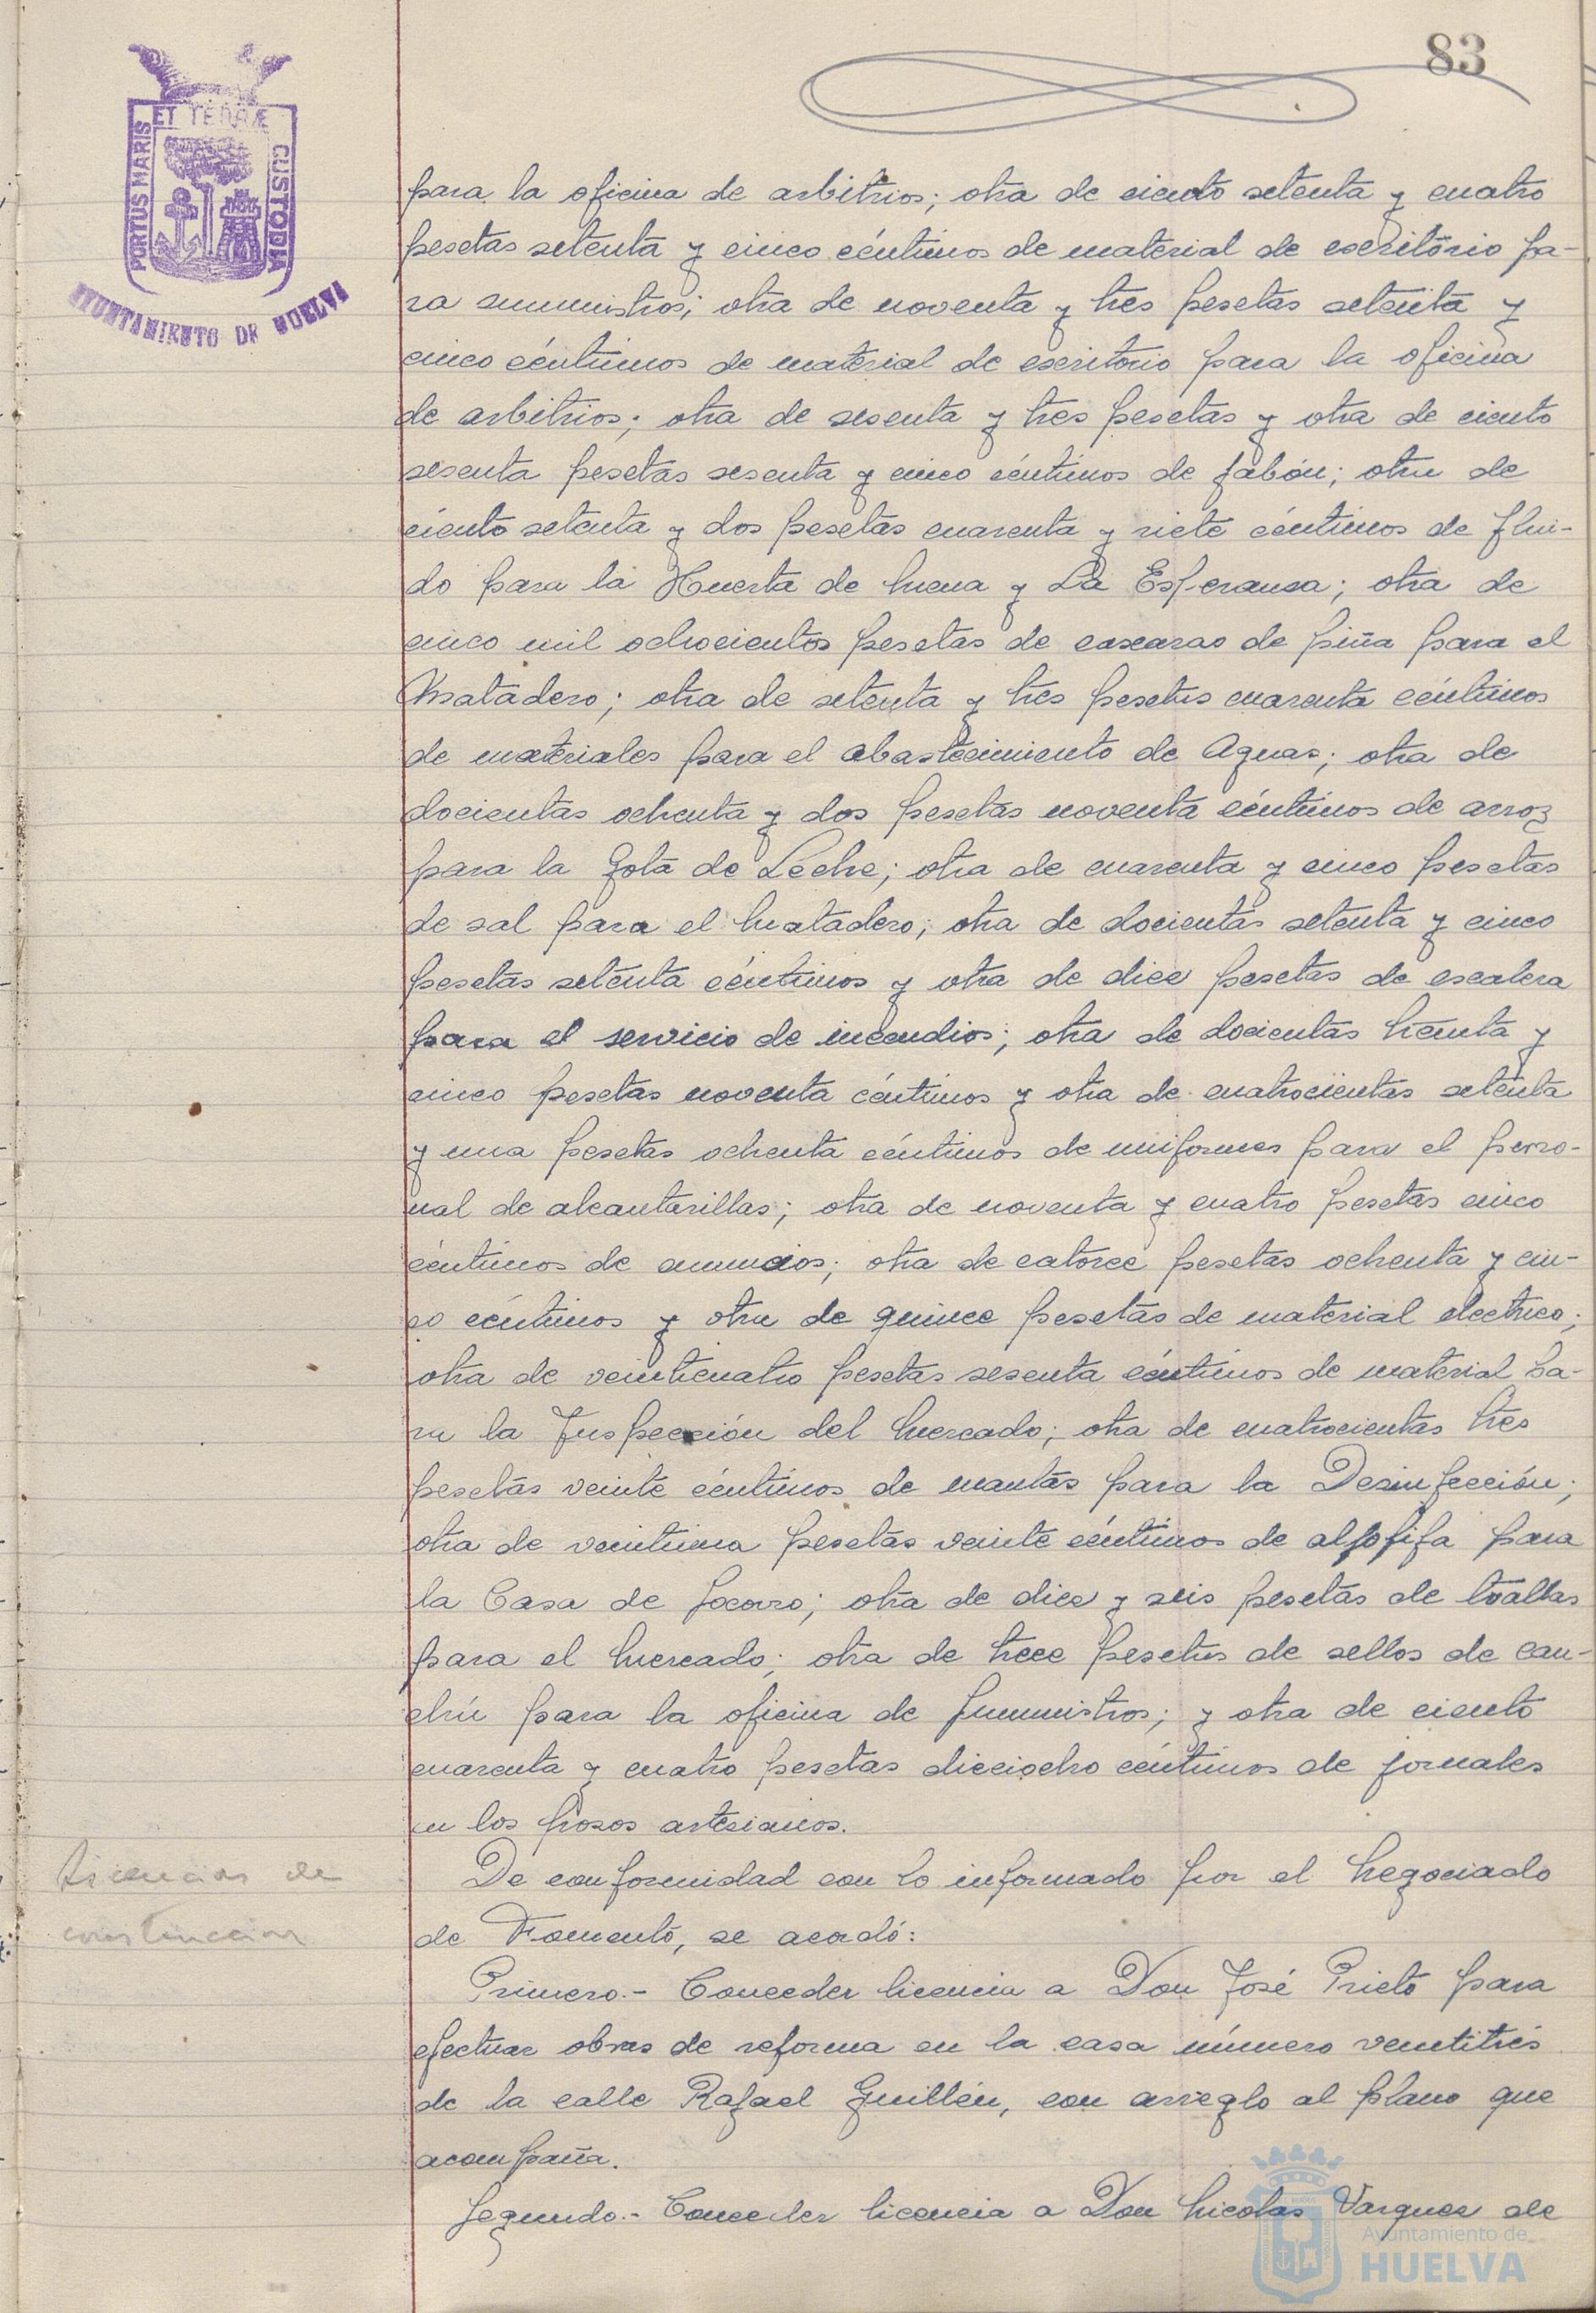 83
PORTUS MARIS ET TERRÆ CUSTODIA
AYUNTAMIENTO DE HUELVA
para la oficina de arbitrios; otra de ciento setenta y cuatro
pesetas setenta y cinco céntimos de material de escritorio pa-
ra summistros; otra de noventa y tres pesetas setenta y
cinco céntimos de material de escritorio para la oficina
de arbitrios; otra de sesenta y tres pesetas y otra de ciento
sesenta pesetas sesenta y cinco céntimos de jabón; otra de
ciento setenta y dos pesetas cuarenta y siete céntimos de flui-
do para la Huerta de Mena y La Esperanza; otra de
cinco mil ochocientos pesetas de cascaras de piña para el
Matadero; otra de setenta y tres pesetas cuarenta céntimos
de materiales para el abastecimiento de Aguas; otra de
docientas ochenta y dos pesetas noventa céntimos de arroz
para la Gota de Leche; otra de cuarenta y cinco pesetas
de sal para el Matadero; otra de docientas setenta y cinco
pesetas setenta céntimos y otra de diez pesetas de escalera
para el servicio de incendios; otra de docientas treinta y
cinco pesetas noventa céntimos y otra de cuatrocientas setenta
y una pesetas ochenta céntimos de uniformes para el perso-
nal de alcantarillas; otra de noventa y cuatro pesetas cinco
céntimos de anuncios; otra de catorce pesetas ochenta y cin-
co céntimos y otra de quince pesetas de material electrico;
otra de veinticuatro pesetas sesenta céntimos de material pa-
ra la Inspección del Mercado; otra de cuatrocientas tres
pesetas veinte céntimos de mantas para la Desinfección;
otra de veintiuna pesetas veinte céntimos de aljofifa para
la Casa de Socorro; otra de diez y seis pesetas de toallas
para el Mercado; otra de trece pesetas de sellos de cau-
chú para la oficina de Summistros; y otra de ciento
cuarenta y cuatro pesetas dieciocho céntimos de jornales
en los pozos artesianos.
Licencias de
construccion
De conformidad con lo informado por el Negociado
de Fomento, se acordó:
Primero.- Conceder licencia a Don José Prieto para
efectuar obras de reforma en la casa número ventitrés
de la calle Rafael Guillén, con arreglo al plano que
acompaña.
Segundo.- Conceder licencia a Don Nicolas Vazquez de
Ayuntamiento de
HUELVA